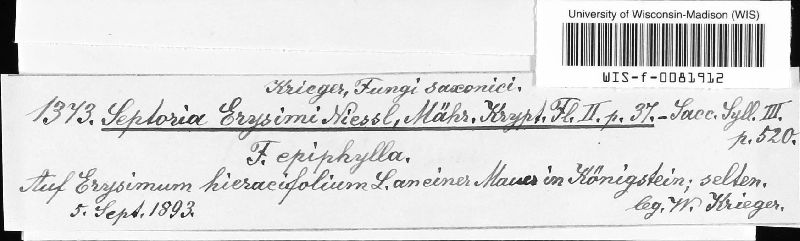 University of Wisconsin-Madison (WIS)
WIS-f-0081912
Krieger, Fungi saxonici.
1373. Septoria Erysimi Niessl, Mähr. Krypt. Fl. II. p. 37. - Sacc. Syll. III.
p. 520.
F. epiphylla.
Auf Erysimum hieracifolium L. an einer Mauer in Königstein; selten.
5. Sept. 1893.
leg. W. Krieger.